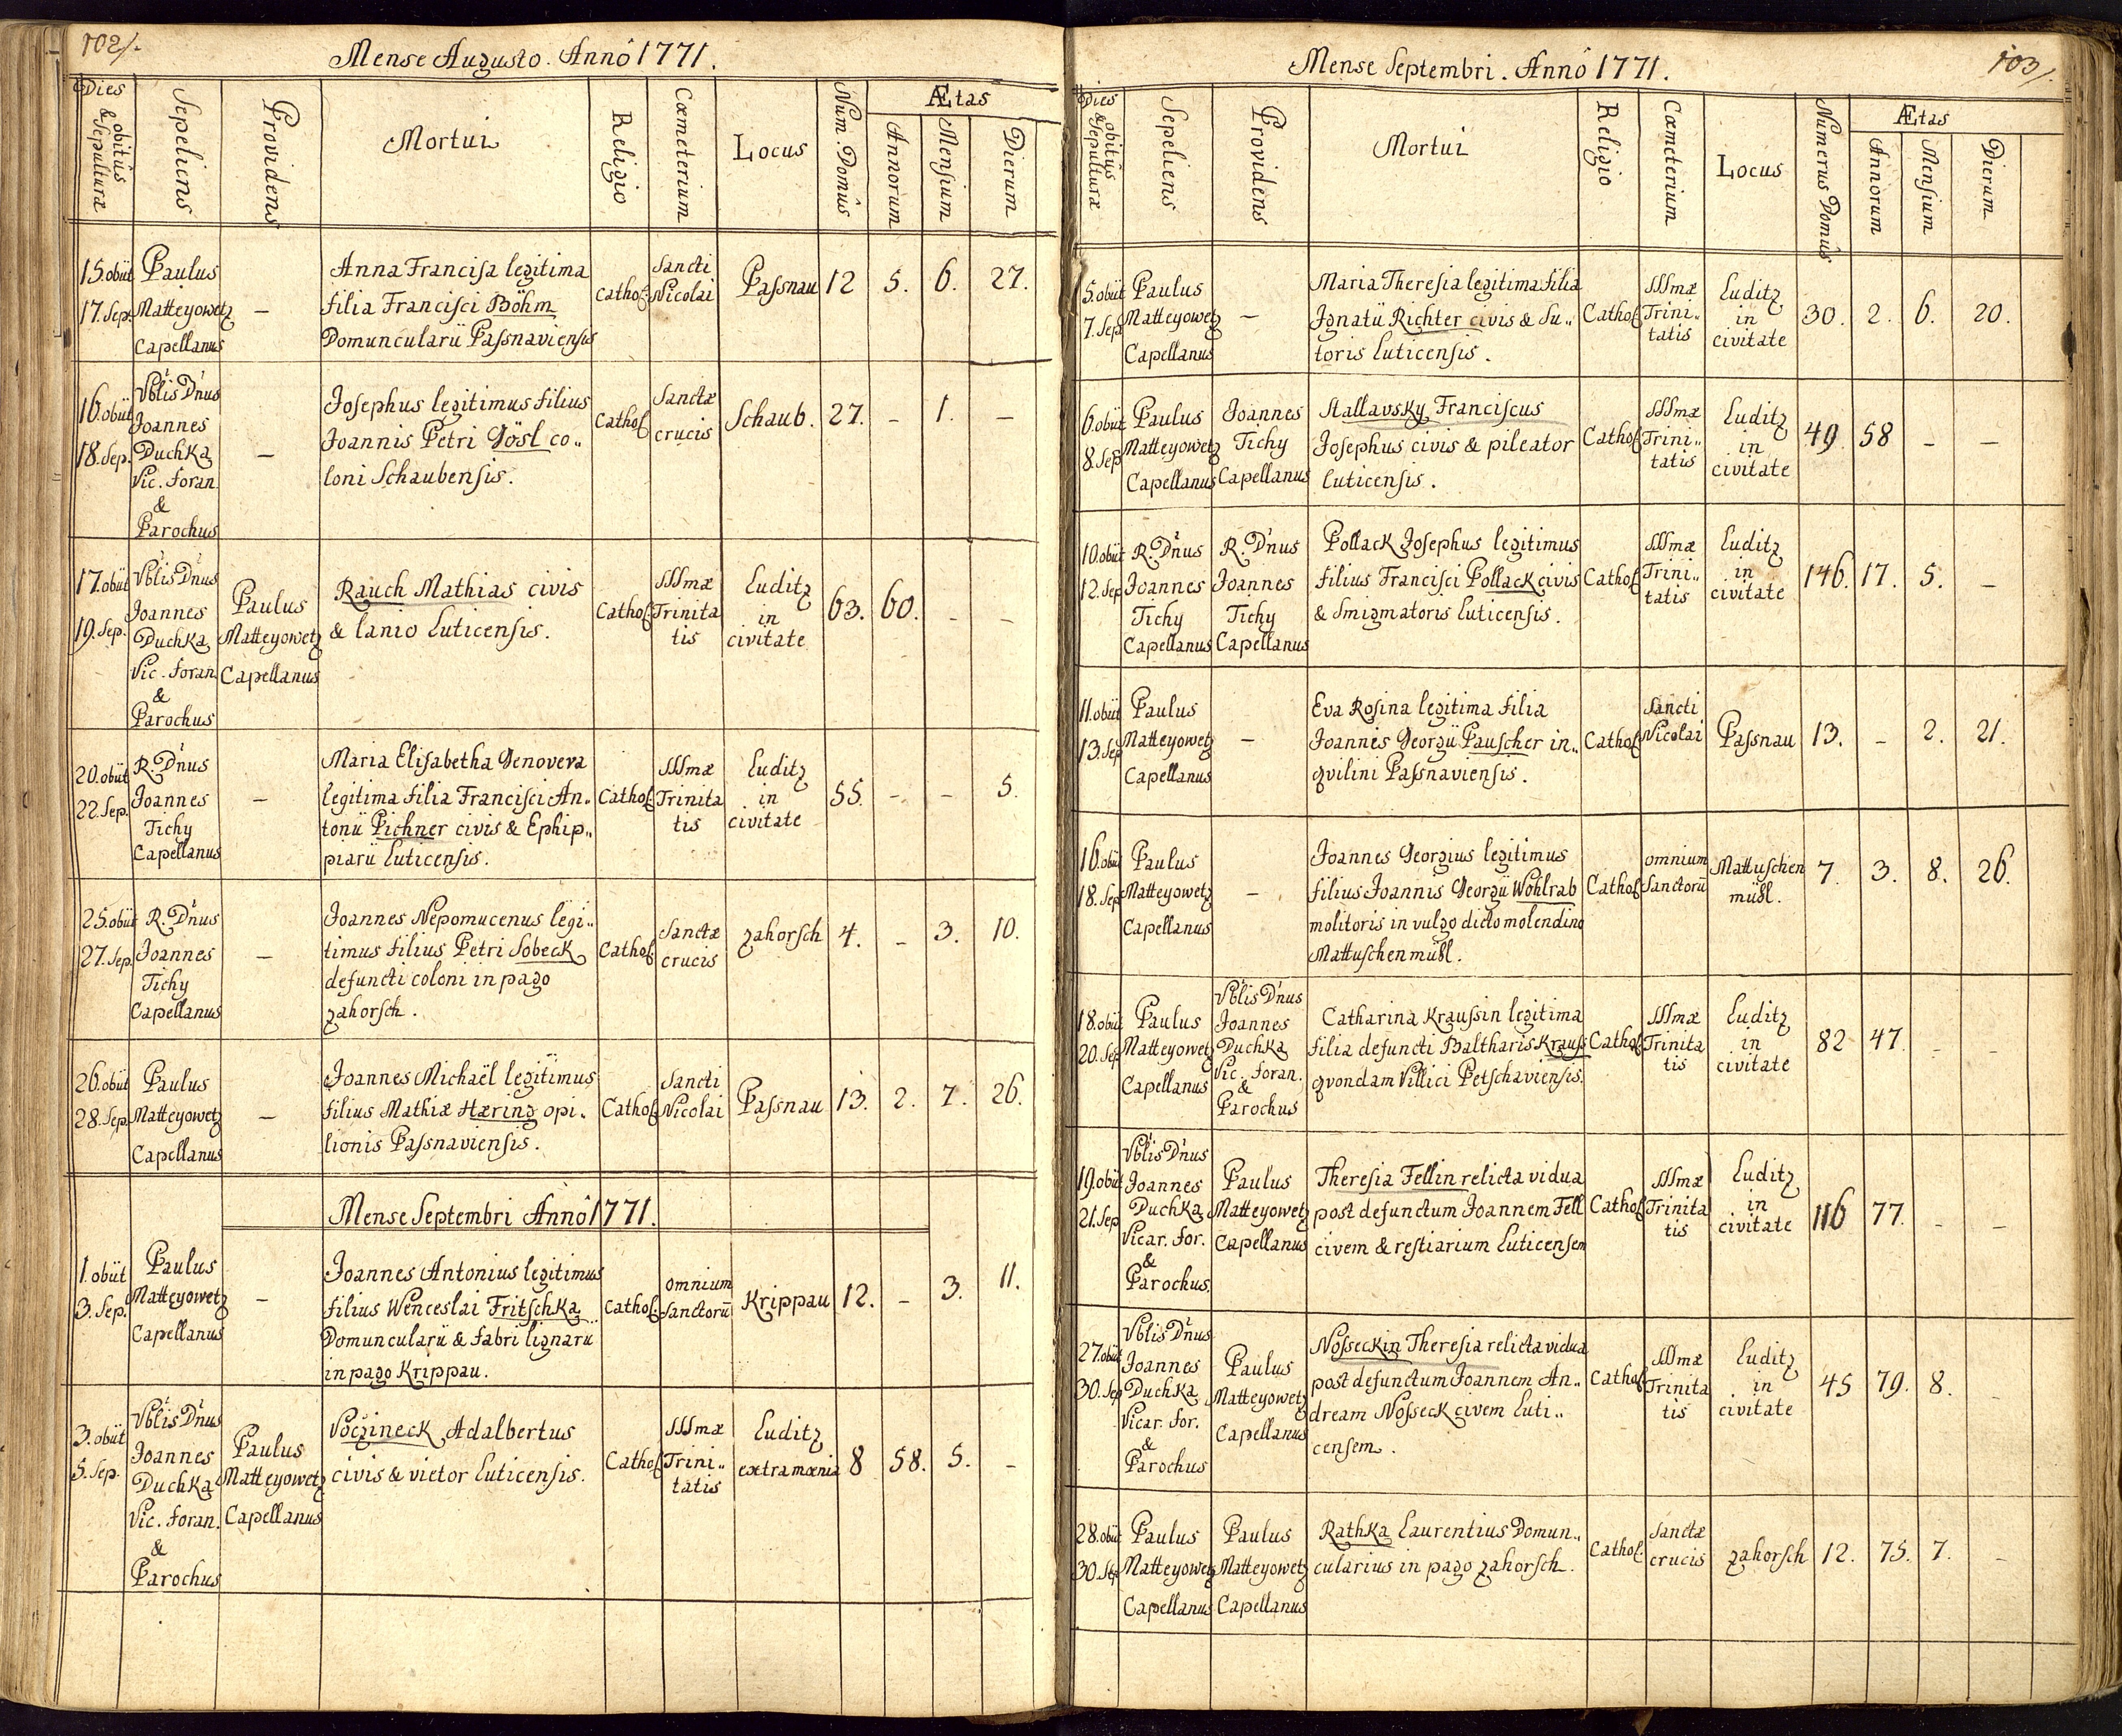 102/.
Mense Augusto. Annô 1771.
Dies obitûs & Sepulturæ
Sepeliens
Providens
Mortui
Religio
Cœmeterium
Locus
Num. Domûs
Ætas
Annorum
Mensium
Dierum
15. obiit
17. Sep.
Paulus
Matteyowetz
Capellanus
–
Anna Francisca legitima
filia Francisci Böhm
Domuncularii Passnaviensis
Cathol.
Sancti
Nicolai
Passnau
12
5.
6.
27.
16. obiit
18. Sep.
Vblis D'nus
Joannes
Duchka
Vic. Foran.
&
Parochus
–
Josephus legitimus filius
Joannis Petri Gösl co..
loni Schaubensis.
Cathol
Sanctæ
crucis
Schaub.
27.
–
1.
–
17. obiit
19. Sep.
Vblis D'nus
Joannes
Duchka
Vic. Foran.
&
Parochus
Paulus
Matteyowetz
Capellanus
Rauch Mathias civis
& lanio Luticensis.
Cathol
SSSmæ
Trinita
tis
Luditz
in
civitate
63.
60.
–
–
20. obiit
22. Sep.
R. D'nus
Joannes
Tichy
Capellanus
–
Maria Elisabetha Genovera
legitima filia Francisci An..
tonii Pichner civis & Ephip..
piarii Luticensis.
Cathol
SSSmæ
Trinita
tis
Luditz
in
civitate
55.
–
–
5.
25. obiit
27. Sep.
R. D'nus
Joannes
Tichy
Capellanus
–
Joannes Nepomucenus legi..
timus filius Petri Sobeck
defuncti coloni in pago
zahorsch.
Cathol
Sanctæ
crucis
zahorsch
4.
–
3.
10.
26. obiit
28. Sep.
Paulus
Matteyowetz
Capellanus
–
Joannes Michaël legitimus
filius Mathiæ Hæring opi..
lionis Passnaviensis.
Cathol
Sancti
Nicolai
Passnau
13.
2.
7.
26.
Mense Septembri Annô 1771.
1. obiit
3. Sep.
Paulus
Matteyowetz
Capellanus
–
Joannes Antonius legitimus
filius Wenceslai Fritschka
Domuncularii & fabri lignarii
in pago Krippau.
Cathol.
omnium
Sanctorū
Krippau
12.
–
3.
11.
3. obiit
5. Sep.
Vblis D'nus
Joannes
Duchka
Vic. Foran.
&
Parochus
Paulus
Matteyowetz
Capellanus
Voczineck Adalbertus
civis & vietor Luticensis.
Cathol
SSSmæ
Trini..
tatis
Luditz
extra mœnia
8
58.
5.
–
103/.
Mense Septembri. Annô 1771.
Dies obitûs & Sepulturæ
Sepeliens
Providens
Mortui
Religio
Cœmeterium
Locus
Numerus Domûs
Ætas
Annorum
Mensium
Dierum
5. obiit
7. Sep
Paulus
Matteyowetz
Capellanus
–
Maria Theresia legitima filia
Ignatii Richter civis & Su..
toris Luticensis.
Cathol
SSSmæ
Trini..
tatis
Luditz
in
civitate
30.
2.
6.
20.
6. obiit
8. Sep
Paulus
Matteyowetz
Capellanus
Joannes
Tichy
Capellanus
Stallavsky Franciscus
Josephus civis & pileator
Luticensis.
Cathol
SSSmæ
Trini..
tatis
Luditz
in
civitate
49
58
–
–
10. obiit
12. Sep
R. D'nus
Joannes
Tichy
Capellanus
R. D'nus
Joannes
Tichy
Capellanus
Pollack Josephus legitimus
filius Francisci Pollack civis
& Smigmatoris Luticensis.
Cathol
SSSmæ
Trini..
tatis
Luditz
in
civitate
146.
17.
5.
–
11. obiit
13. Sep
Paulus
Matteyowetz
Capellanus
–
Eva Rosina legitima filia
Joannis Georgii Pauscher in..
qvilini Passnaviensis.
Cathol
Sancti
Nicolai
Passnau
13.
–
2.
21.
16. obiit
18. Sep
Paulus
Matteyowetz
Capellanus
–
Joannes Georgius legitimus
filius Joannis Georgii Wohlrab
molitoris in vulgo dicto molendino
Mattuschenmühl.
Cathol
omnium
Sanctorū
Mattuschen
mühl.
7.
3.
8.
26.
18. obiit
20. Sep
Paulus
Matteyowetz
Capellanus
Vblis D'nus
Joannes
Duchka
Vic. Foran.
&
Parochus
Catharina Kraussin legitima
filia defuncti Baltharis Krauss
qvondam Villici Petschaviensis.
Cathol
SSSmæ
Trinita
tis
Luditz
in
civitate
82
47.
–
–
19. obiit
21. Sep
Vblis D'nus
Joannes
Duchka
Vicar. For.
&
Parochus.
Paulus
Matteyowetz
Capellanus
Theresia Fellin relicta vidua
post defunctum Joannem Fell
civem & restiarium Luticensem
Cathol
SSSmæ
Trinita
tis
Luditz
in
civitate
116
77.
–
–
27. obiit
30. Sep
Vblis D'nus
Joannes
Duchka
Vicar. For.
&
Parochus
Paulus
Matteyowetz
Capellanus
Nosseckin Theresia relicta vidua
post defunctum Joannem An..
dream Nosseck civem Luti..
censem.
Cathol
SSSmæ
Trinita
tis
Luditz
in
civitate
45
79.
8.
–
28. obiit
30. Sep
Paulus
Matteyowetz
Capellanus
Paulus
Matteyowetz
Capellanus
Rathka Laurentius Domun..
cularius in pago zahorsch.
Cathol.
Sanctæ
crucis
zahorsch
12.
75.
7.
–